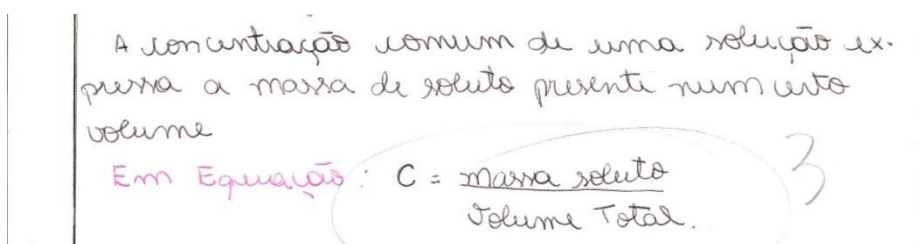 A concentração comum de uma solução ex-
pressa a massa de soluto presente num certo
volume
Em Equação: C = massa soluto
Volume Total.
3